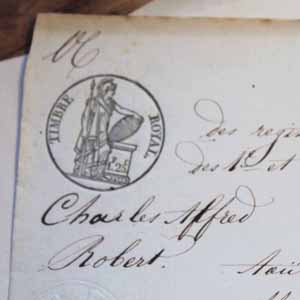 TIMBRE ROYAL
des regi
des 1r et
Charles Alfred
Robert. Aoû